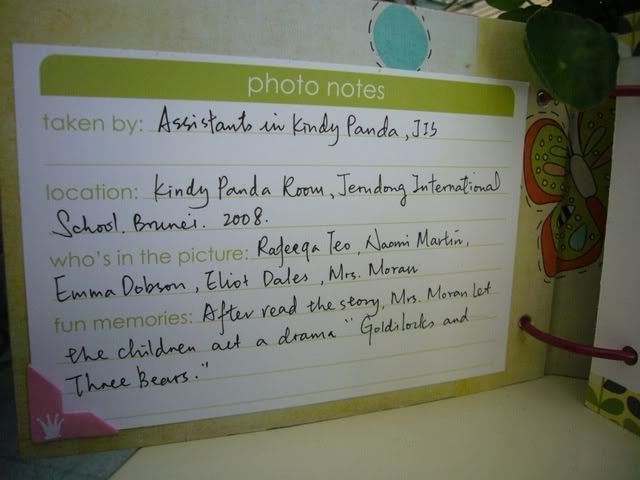 photo notes
taken by: Assistants in Kindy Panda, JIS
location: Kindy Panda Room, Jerudong International
School. Brunei. 2008.
who's in the picture: Rafeeqa Teo, Naomi Martin,
Emma Dobson, Eliot Dales, Mrs. Moran
fun memories: After read the story, Mrs. Moran let
the children act a drama "Goldilocks and
Three Bears."